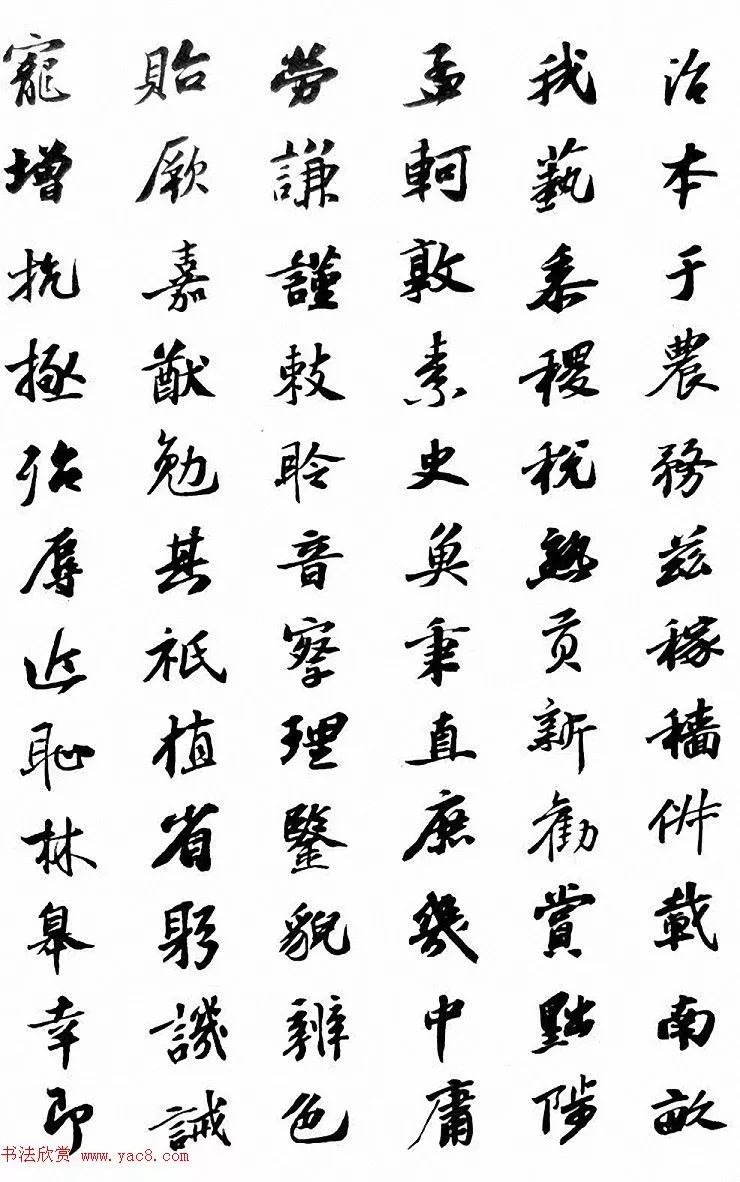 治本于農務茲稼穡俶載南畝
我藝黍稷稅熟貢新勸賞黜陟
孟軻敦素史魚秉直庶幾中庸
勞謙謹敕聆音察理鑒貌辨色
貽厥嘉猷勉其祗植省躬譏誡
寵增抗極殆辱近恥林皋幸即
书法欣赏 www.yac8.com